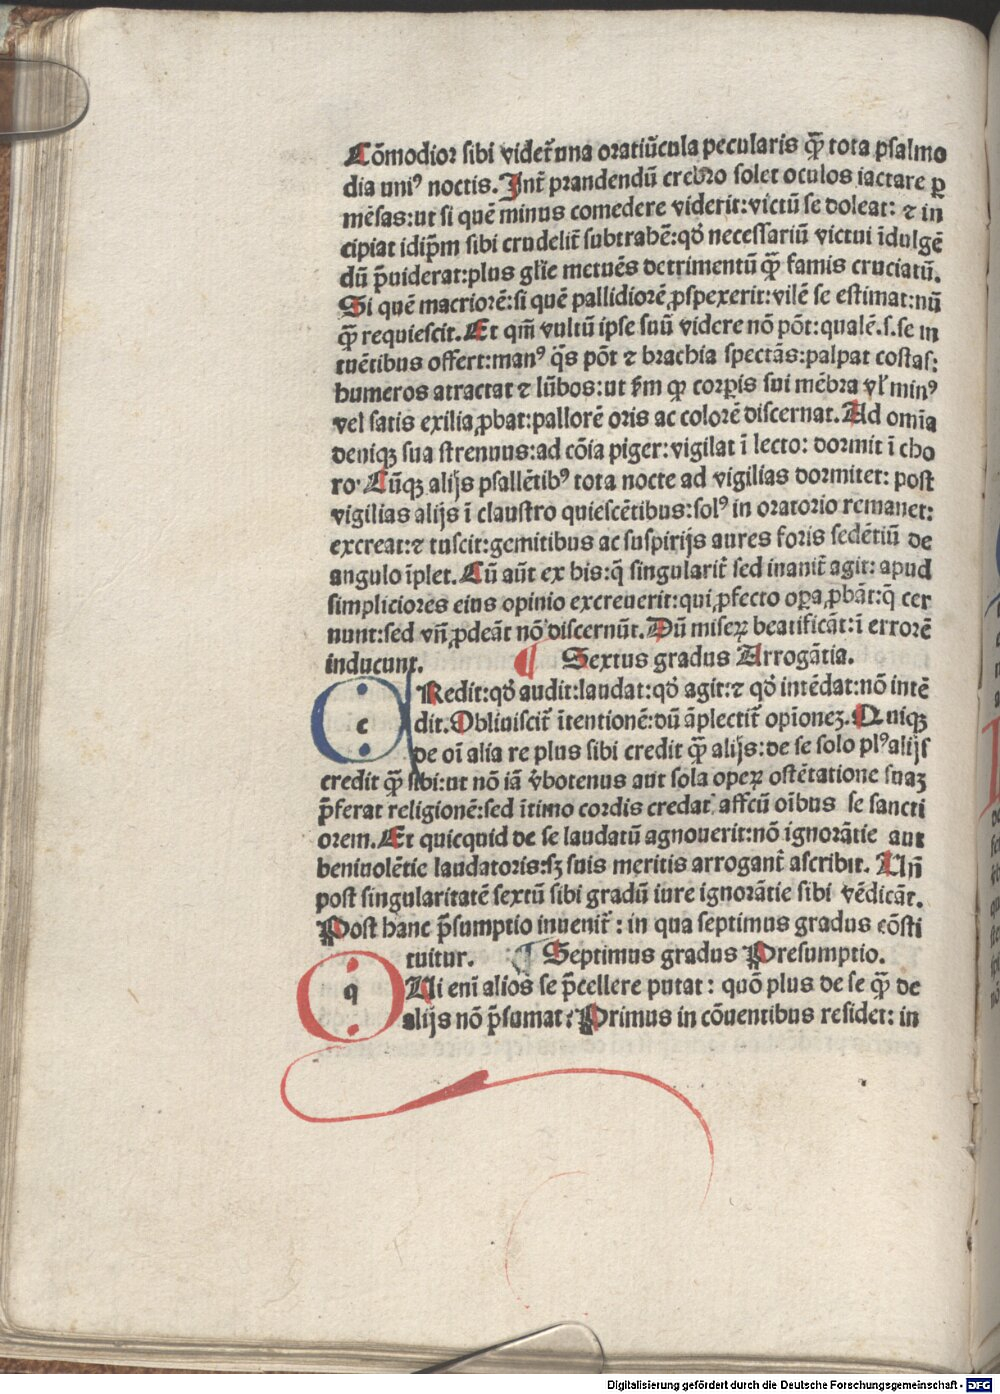 Cōmodior sibi videt᷑ una oratiūcula peculiaris q̄ȝ tota psalmo
dia uniꝰ noctis. Int᷑ prandendū crebro solet oculos iactare ꝑ
mēsas: ut si quē minus comedere viderit: victū se doleat: ⁊ in
cipiat idip̄m sibi crudelit᷑ subtrahē: qd̕ necessariū victui īdulgē
dū p̄uiderat: plus glīe metuēs detrimentū q̄ȝ famis cruciatū.
Si quē macriorē: si quē pallidiorē ꝓspexerit: vilē se estimat: nū
q̄ȝ requiescit. Et qm̄ vultū ipse suū videre nō pōt: qualē .s. se in
tuētibus offert: manꝰ q̄s pōt ⁊ brachia spectās: palpat costas:
humeros atractat ⁊ lūbos: ut ẜm ꝙ corꝑis sui mēbra vl̕ minꝰ
vel satis exilia ꝓbat: pallorē oris ac colorē discernat. Ad om̄ia
deniqȝ sua strennus: ad cōia piger: vigilat ī lecto: dormit ī cho
ro. Cūqȝ alijs psallētibꝰ tota nocte ad vigilias dormitet: post
vigilias alijs ī claustro quiescētibus: solꝰ in oratorio remanet:
excreat: ⁊ tuscit: gemitibus ac suspirijs aures foris sedētiū de
angulo īplet. Cū aūt ex his: q̄ singularit᷑ sed inanit᷑ agit: apud
simpliciores eius opinio excreuerit: qui ꝓfecto oꝑa ꝓbāt: q̄ cer
nunt: sed vn̄ ꝓdeāt nō discernūt. Dū miseꝝ beatificāt: ī errorē
inducunt. ¶ Sextus gradus Arrogātia.
c Redit: qd̕ audit: laudat: qd̕ agit: ⁊ qd̕ intēdat: nō intē
dit. Obliuiscit᷑ ītentionē: dū āplectit᷑ opīoneȝ. Quiqȝ
de oī alia re plus sibi credit q̄ȝ alijs: de se solo plꝰ alijs
credit q̄ȝ sibi: ut nō iā v̄botenus aut sola opeꝝ ostētatione suaȝ
p̄ferat religionē: sed ītimo cordis credat affcū oībus se sancti
orem. Et quicquid de se laudatū agnouerit: nō ignorātie aut
beniuolētie laudatoris: sȝ suis meritis arrogant᷑ ascribit. Un̄
post singularitatē sextū sibi gradū iure ignorātie sibi vēdicāt.
Post hanc p̄sumptio inuenit᷑: in qua septimus gradus cōsti
tuitur. ¶ Septimus gradus Presumptio.
q Ui enī alios se p̄cellere putat: quō plus de se q̄ȝ de
alijs nō p̄sumat? Primus in cōuentibus residet: in
Digitalisierung gefördert durch die Deutsche Forschungsgemeinschaft - DFG